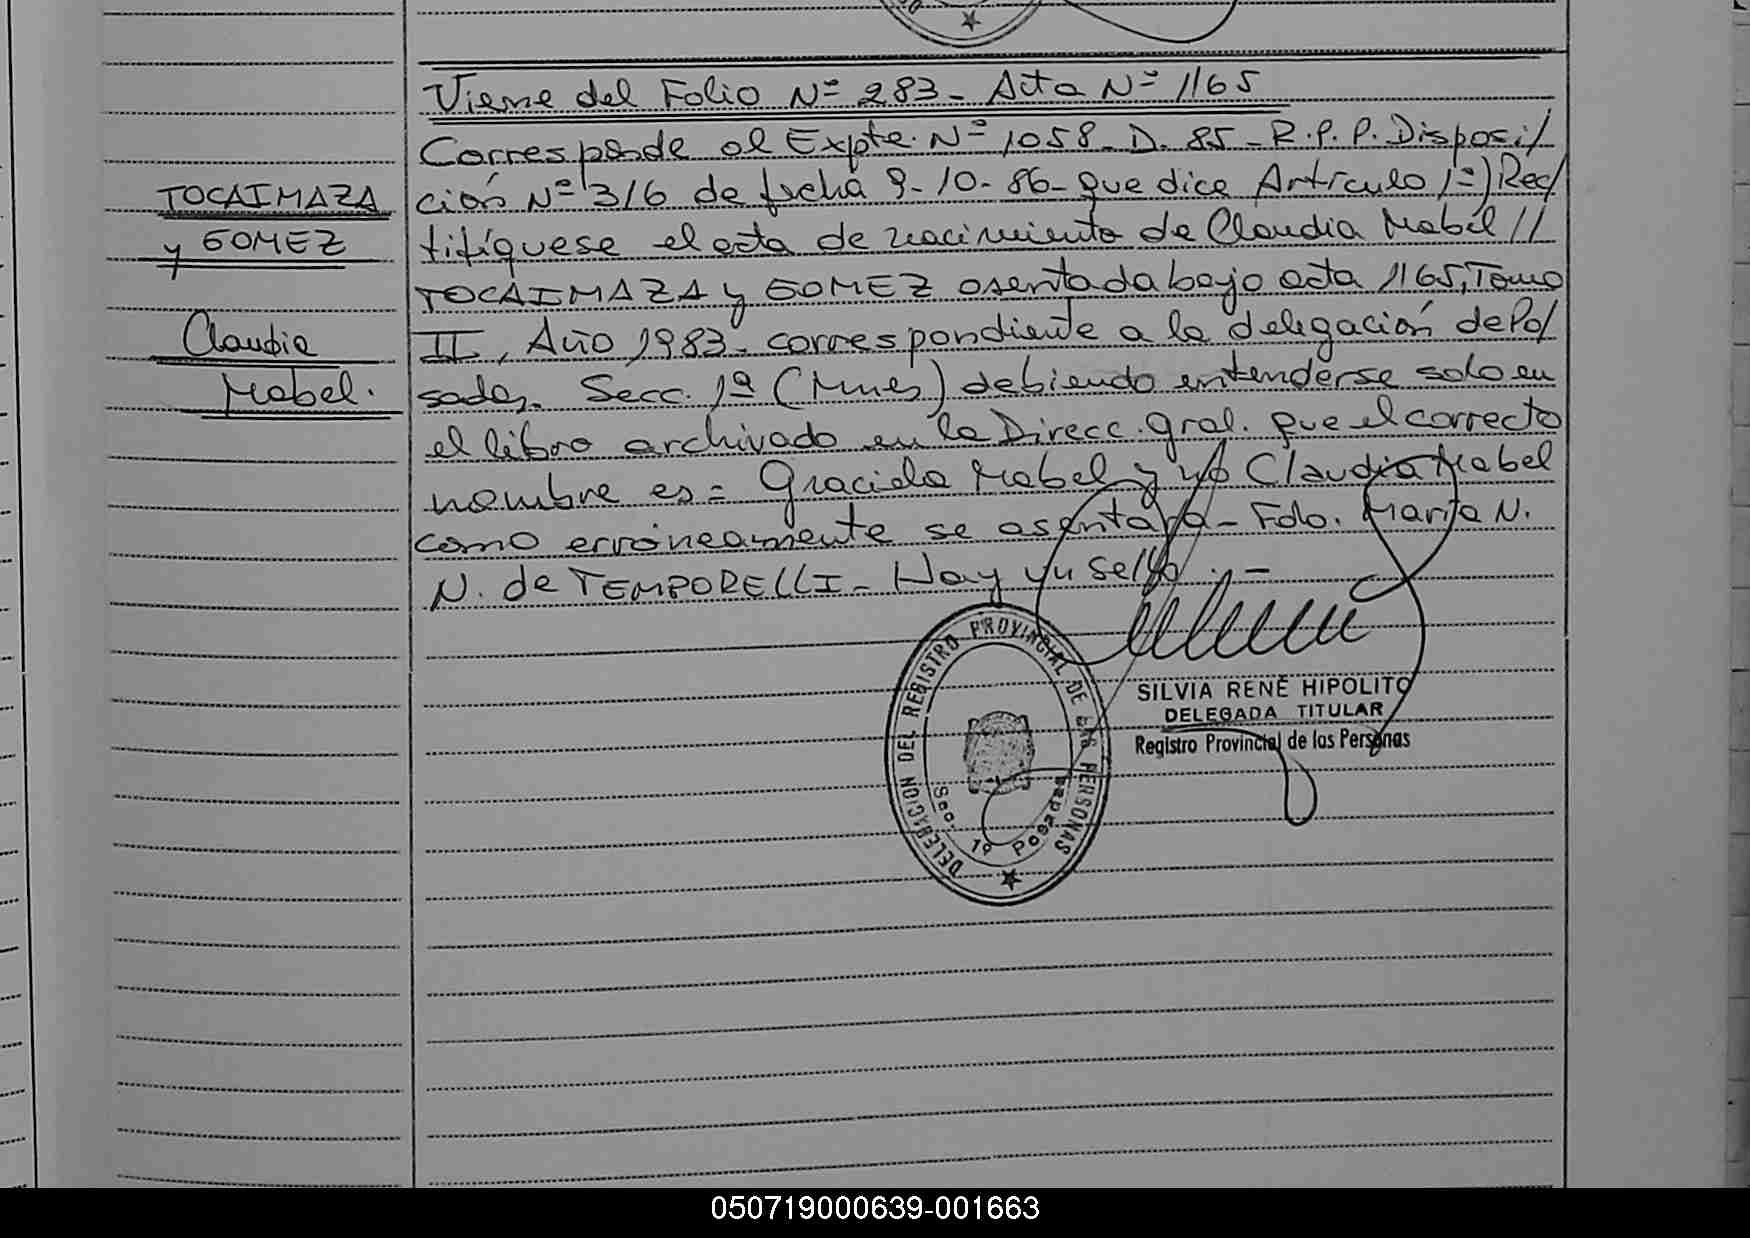 Viene del Folio Nº 283 - Acta Nº 1165
Corresponde al Expte. Nº 1058 - D. 85 - R.P.P. Disposi/
TOCAIMAZA
ción Nº 316 de fecha 9-10-86 - que dice Artículo 1º) Rec/
y GOMEZ
tifíquese el acta de nacimiento de Claudia Mabel //
TOCAIMAZA y GOMEZ asentada bajo acta 1165, Tomo
Claudia
II, Año 1983 - correspondiente a la delegación de Po/
Mabel.
sadas. Secc. 1ª (Mnes) debiendo entenderse solo en
el libro archivado en la Direcc. gral. que el correcto
nombre es = Graciela Mabel y no Claudia Mabel
como erróneamente se asentara - Fdo. María N.
N. de TEMPORELLI - Hay un sello . -
DELEGACION DEL REGISTRO PROVINCIAL DE LAS PERSONAS
Sec. 1ª Posadas
SILVIA RENÉ HIPOLITO
DELEGADA TITULAR
Registro Provincial de las Personas
050719000639-001663